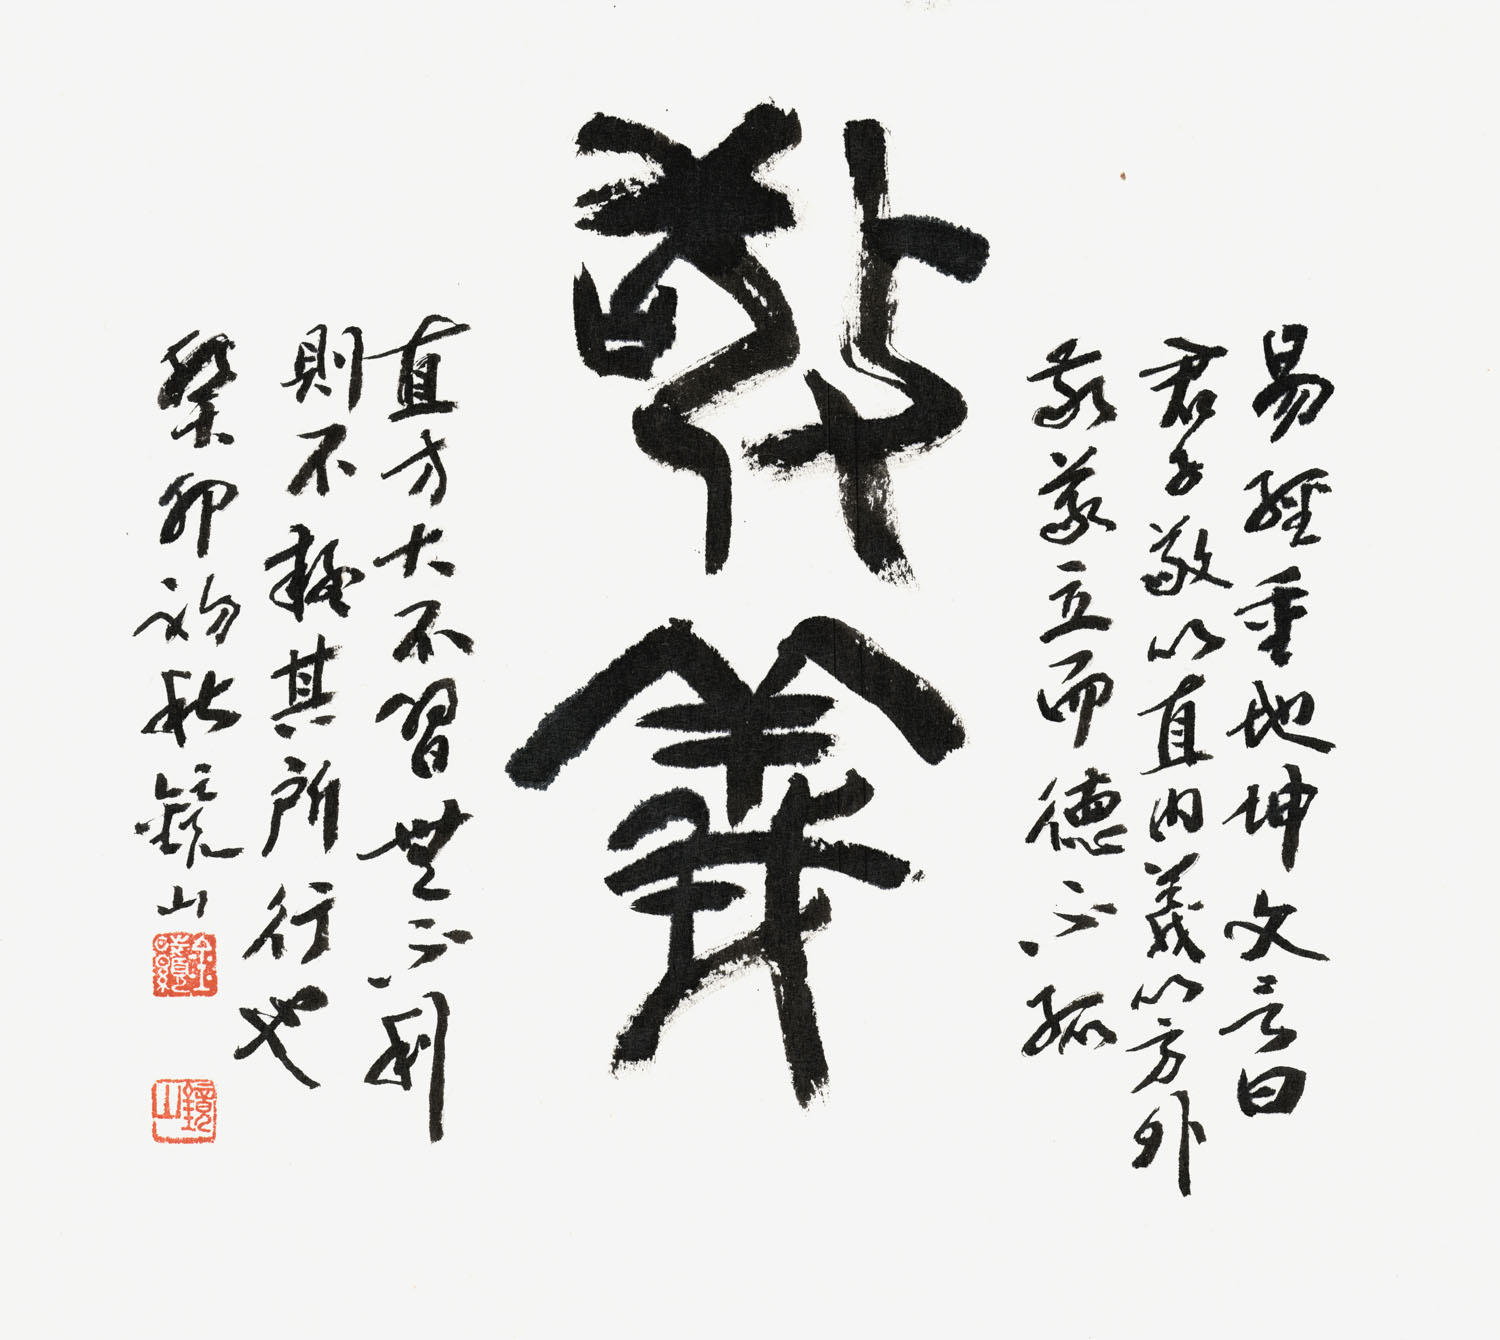 易經重地坤文言曰
君子敬以直內義以方外
敬義立而德不孤
敬義
直方大不習無不利
則不疑其所行也
癸卯初秋鏡山
鏡山